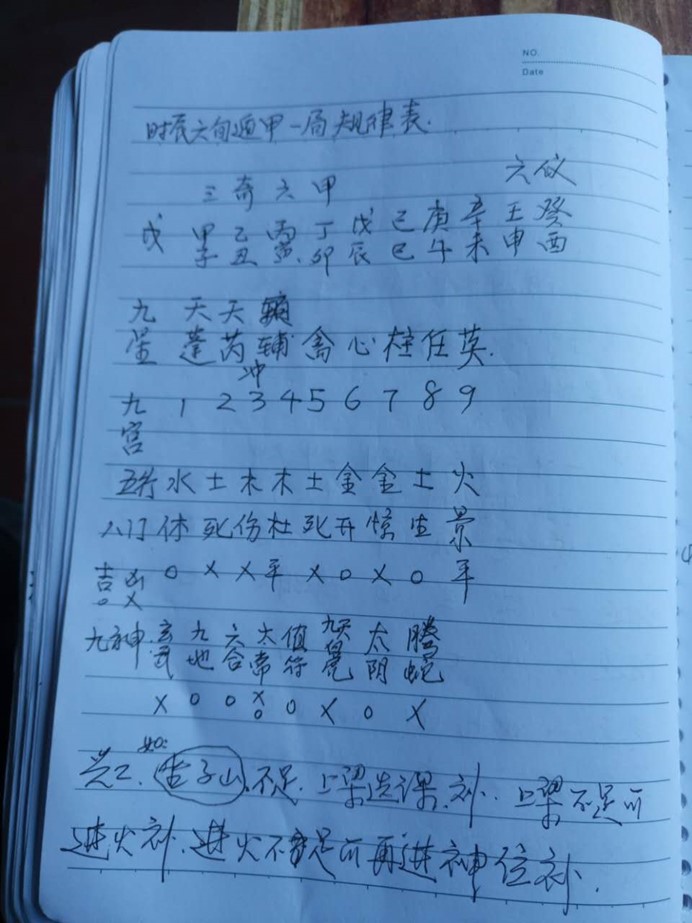 NO.
Date
时辰六旬遁甲一局规律表.
三奇六甲 六仪
戊 甲乙丙丁戊己庚辛壬癸
子丑寅卯辰巳午未申酉
九 天天辅
星 蓬芮辅禽心柱任英.
冲
九 1 2 3 4 5 6 7 8 9
宫
五行 水土木木土金金土火
八门 休死伤杜死开惊生景
吉凶 o x x 平 x o x o 平
o x
九神: 玄 九 六 太 值 九天 太 腾
武 地 合 常 符 虎 阴 蛇
x o o x o x o x
o
如:
兰2. 壬子山.不足.上梁选课.补. 上梁不足可
进火补.进火不足可再进神位补.